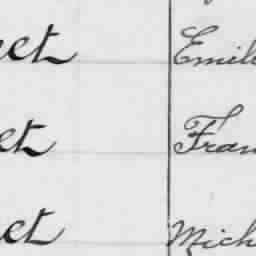 et Emil
et Fran
et Mich